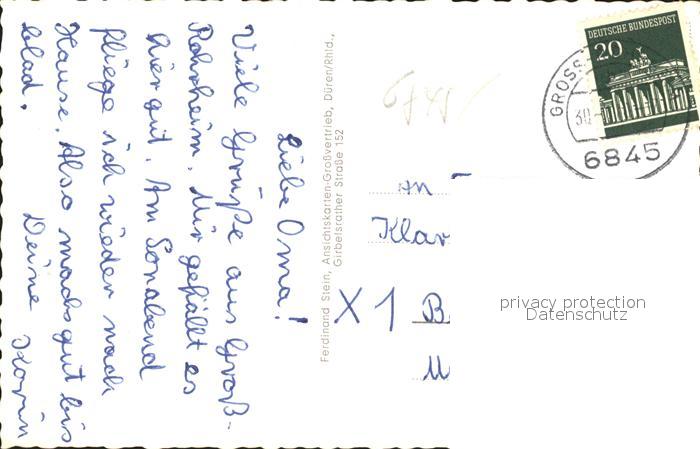 Liebe Oma!
Viele Grüße aus Groß-
Rohrheim. Mir gefällt es
hier gut. Am Sonabend
fliege ich wieder nach
Hause. Also machs gut bis
blad.
Deine Karin
Ferdinand Stein, Ansichtskarten-Großvertrieb, Düren/Rhld.,
Girbelsrather Straße 152
DEUTSCHE BUNDESPOST
20
GROSS
30.
6845
An
Klar
X 1 B
M
privacy protection
Datenschutz